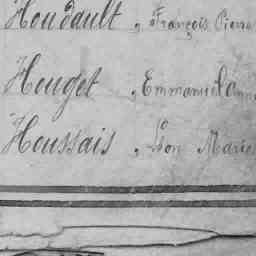 Houdault, François Pierre
Houget, Emmanuel Anne
Houssais, Léon Marie